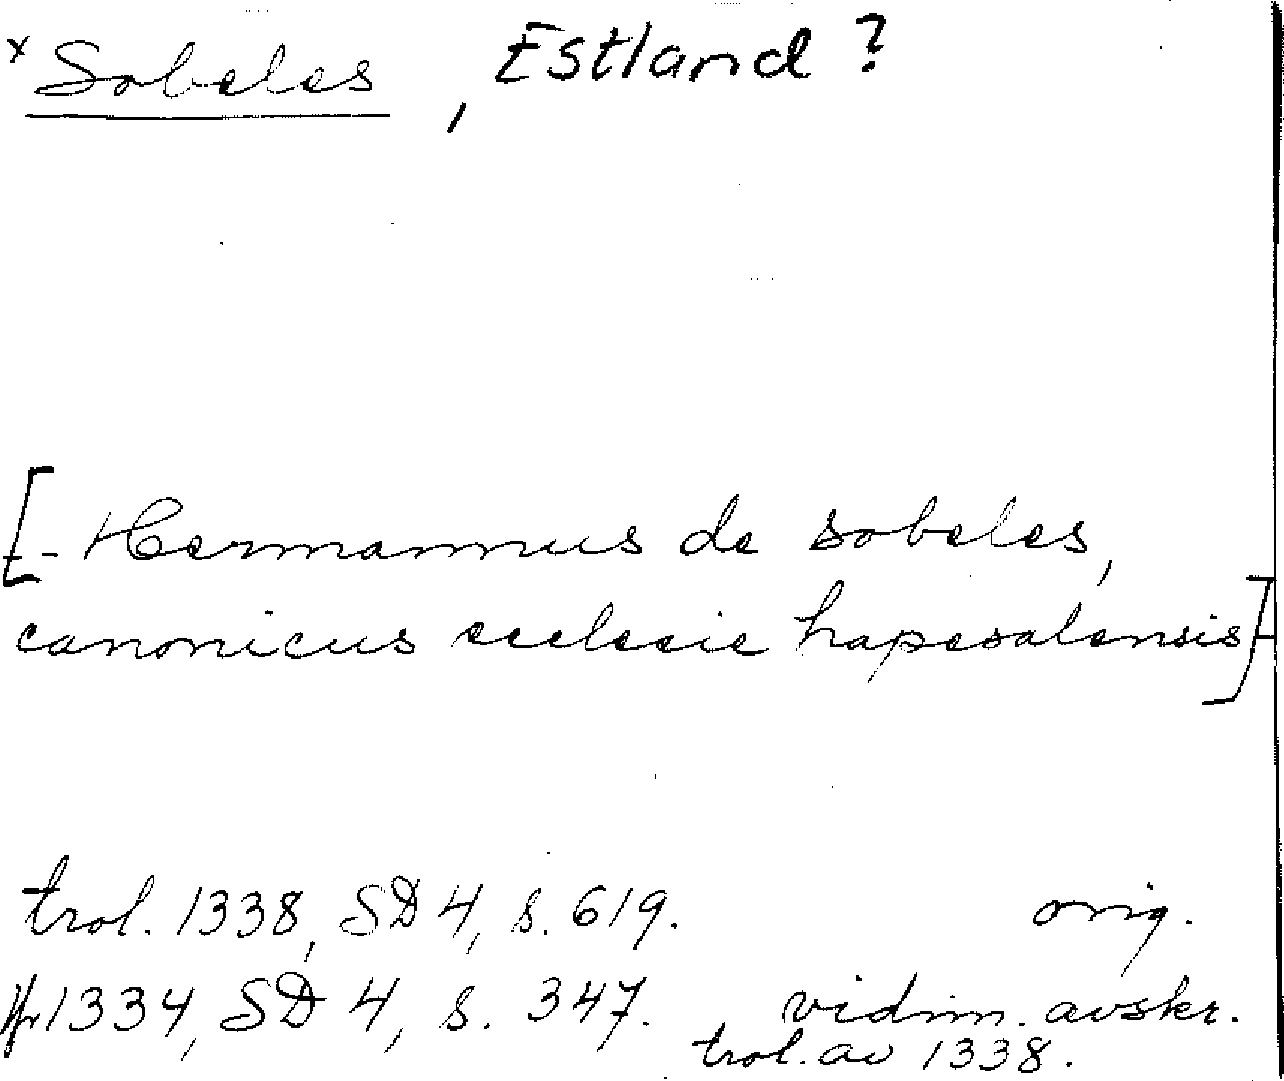 x Sobeles, Estland?
[- Hermannus de sobeles,
canonicus ecclecie hapesalensis]
trol. 1338, SD 4, s. 619. orig.
1334, SD 4, s. 347. vidim. avskr.
trol. av 1338.